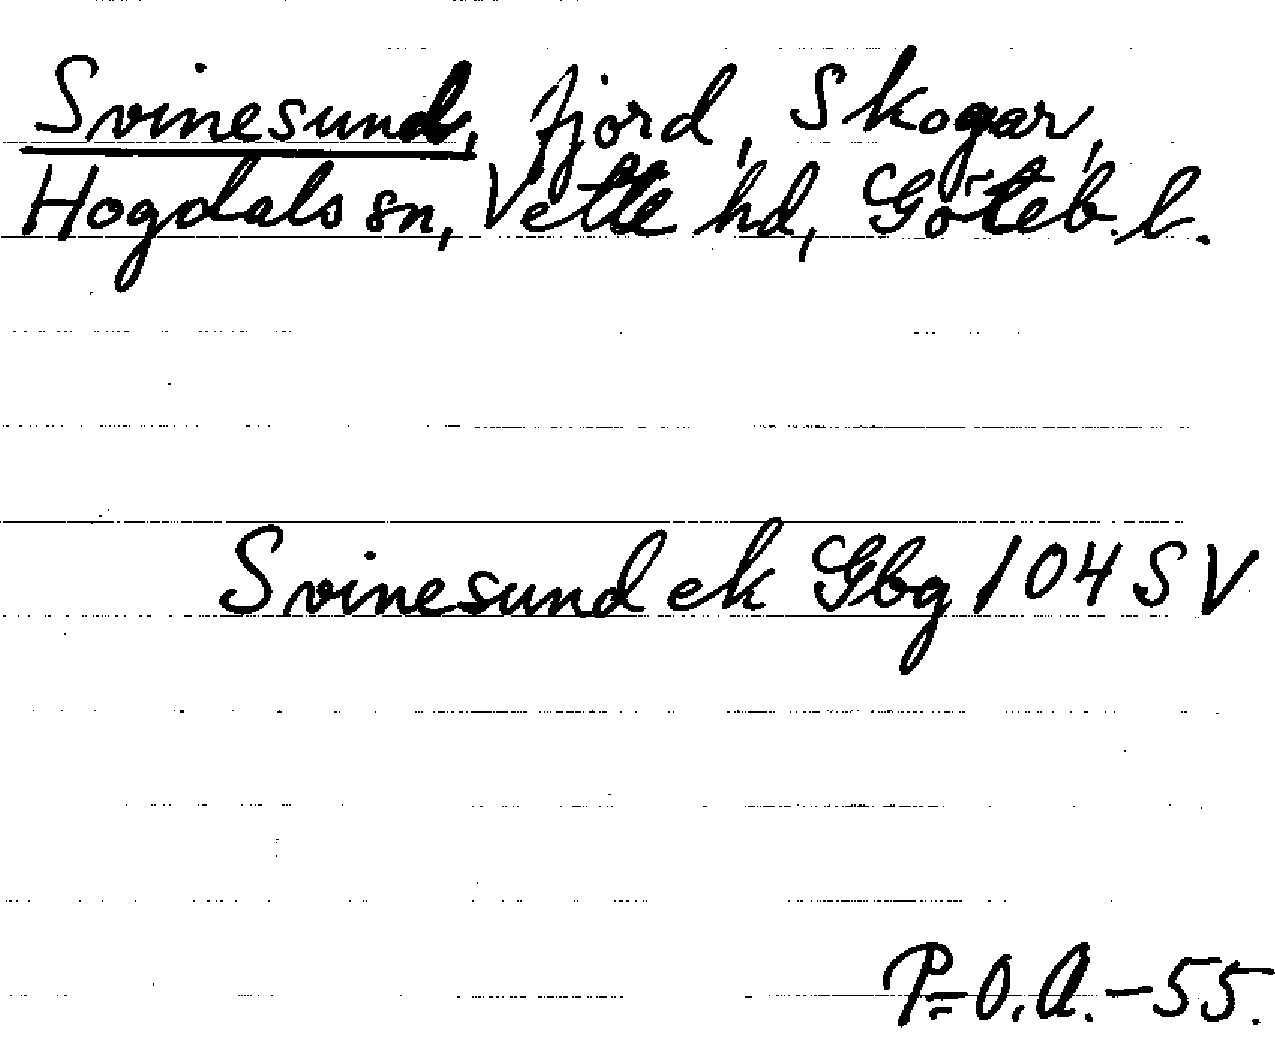 Svinesund, fjord, Skogar,
Hogdals sn, Vette hd, Göteb. l.
Svinesund ek Gbg 104 SV
P=O.A.-55.